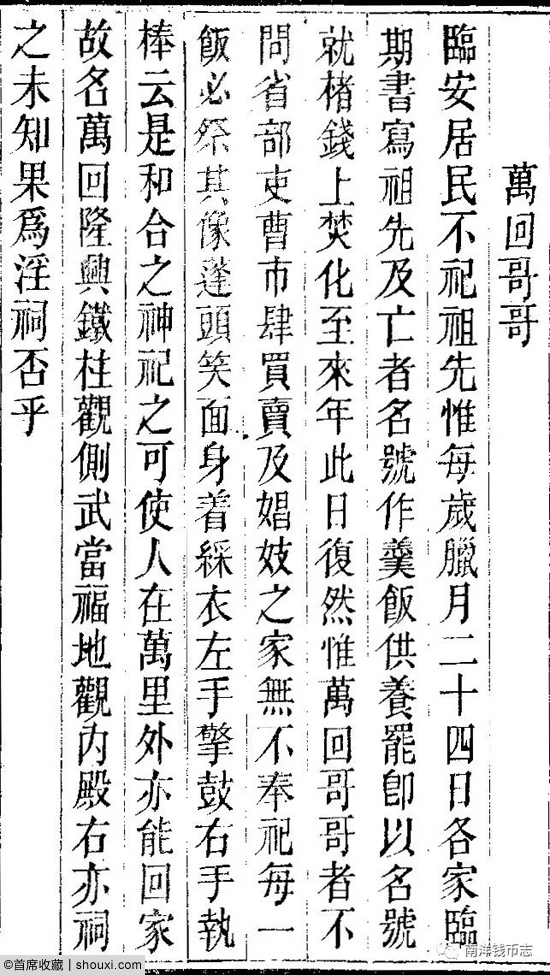 萬回哥哥
臨安居民不祀祖先惟每歲臘月二十四日各家臨
期書寫祖先及亡者名號作羹飯供養罷卽以名號
就楮錢上焚化至來年此日復然惟萬回哥哥者不
問省部吏曹市肆買賣及娼妓之家無不奉祀每一
飯必祭其像蓬頭笑面身着綵衣左手擎鼓右手執
棒云是和合之神祀之可使人在萬里外亦能回家
故名萬回隆興鐵柱觀側武當福地觀內殿右亦祠
之未知果爲淫祠否乎
@首席收藏 | shouxi.com
南洋钱币志